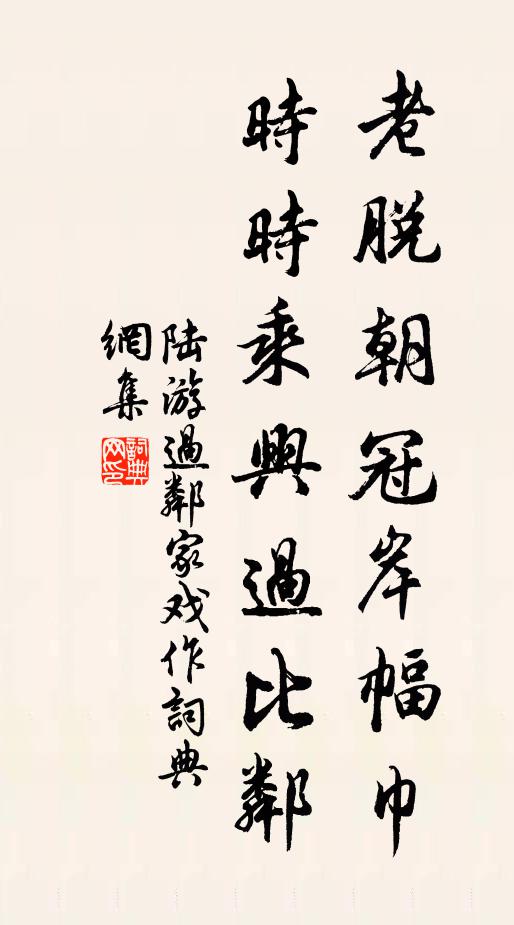 老脫朝冠岸幅巾
時時乘興過比鄰
陸游過鄰家戏作詞典
網集
詞典網印